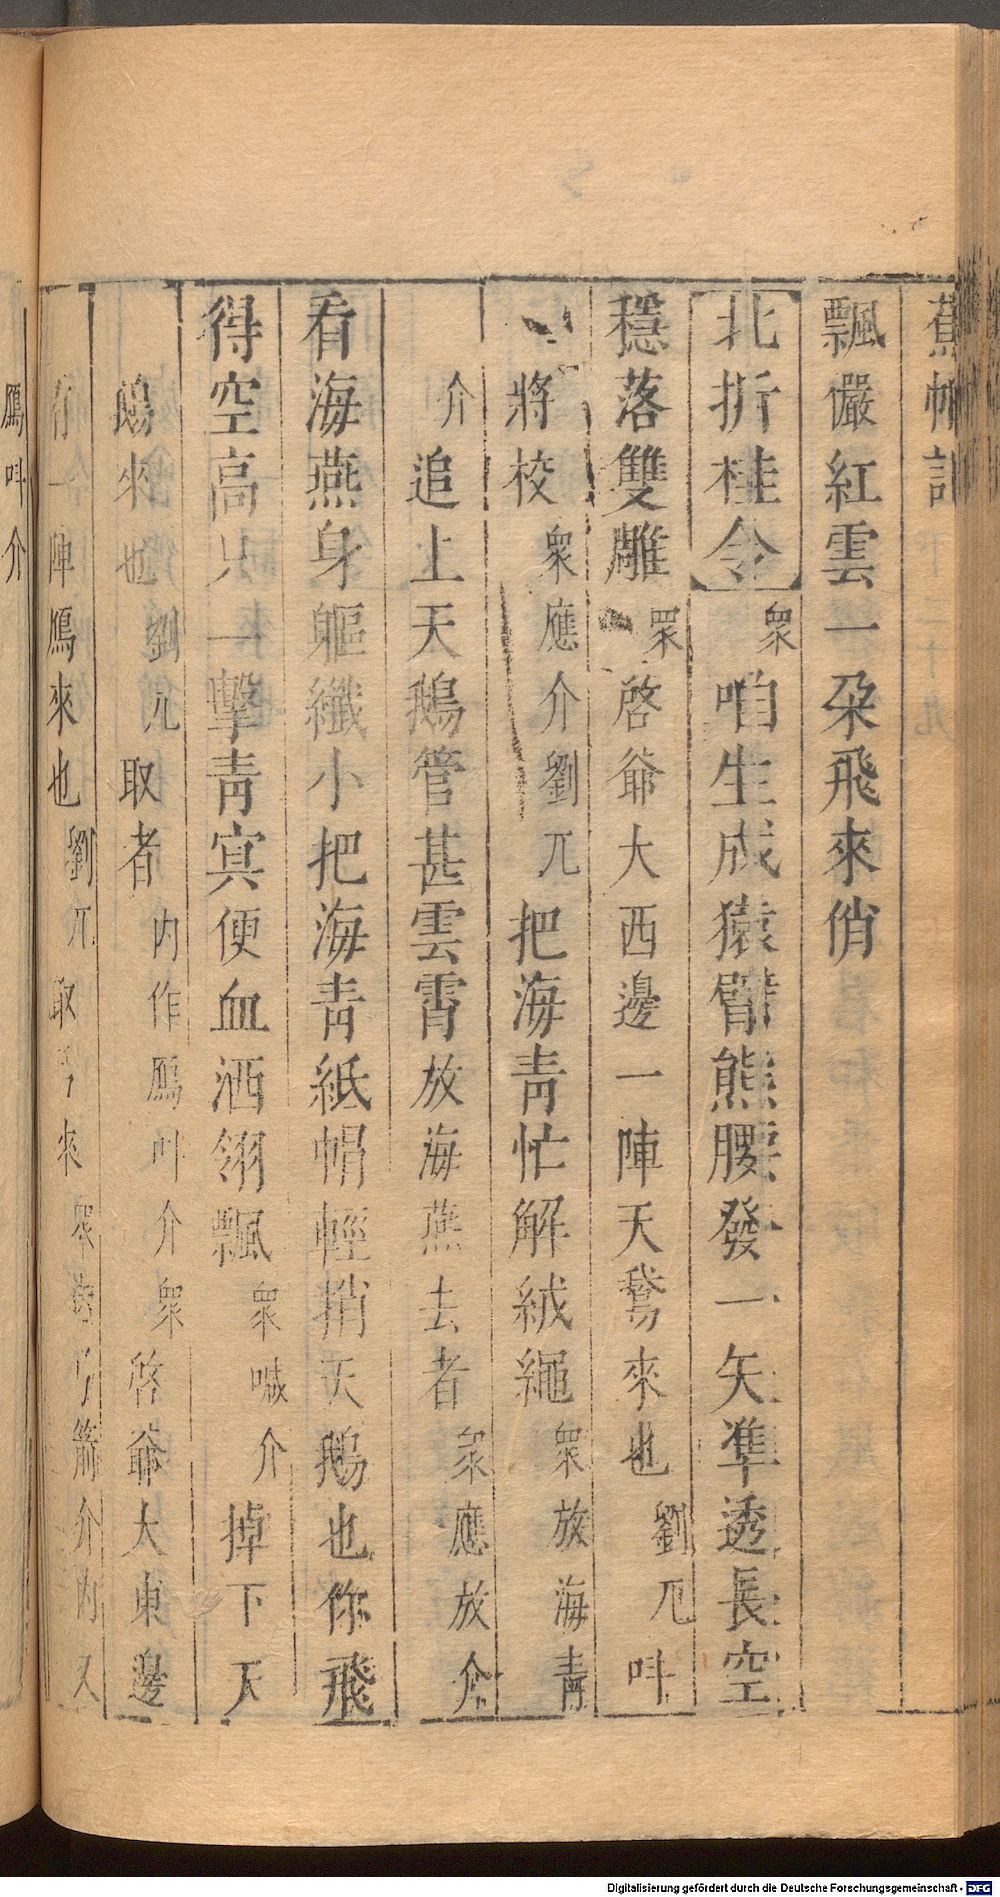 蕉帕記
飄儼紅雲一朶飛來俏
北折桂令衆咱生成猿臂熊腰發一矢準透長空
穩落雙雕衆啓爺大西邊一陣天鵞來也劉兀叫
將校衆應介劉兀把海青忙解絨繩衆放海青
介追上天鵝管甚雲霄放海燕去者衆應放介
看海燕身軀纖小把海青紙帽輕揹天鵝也你飛
得空高只一擊青寞便血洒翎飄衆喊介掉下天
鵝來也劉兀取者內作鴈叫介衆啓爺大東邊
有一陣鴈來也劉兀取弓來衆遞弓箭介內又
鴈叫介
Digitalisierung gefördert durch die Deutsche Forschungsgemeinschaft - DFG